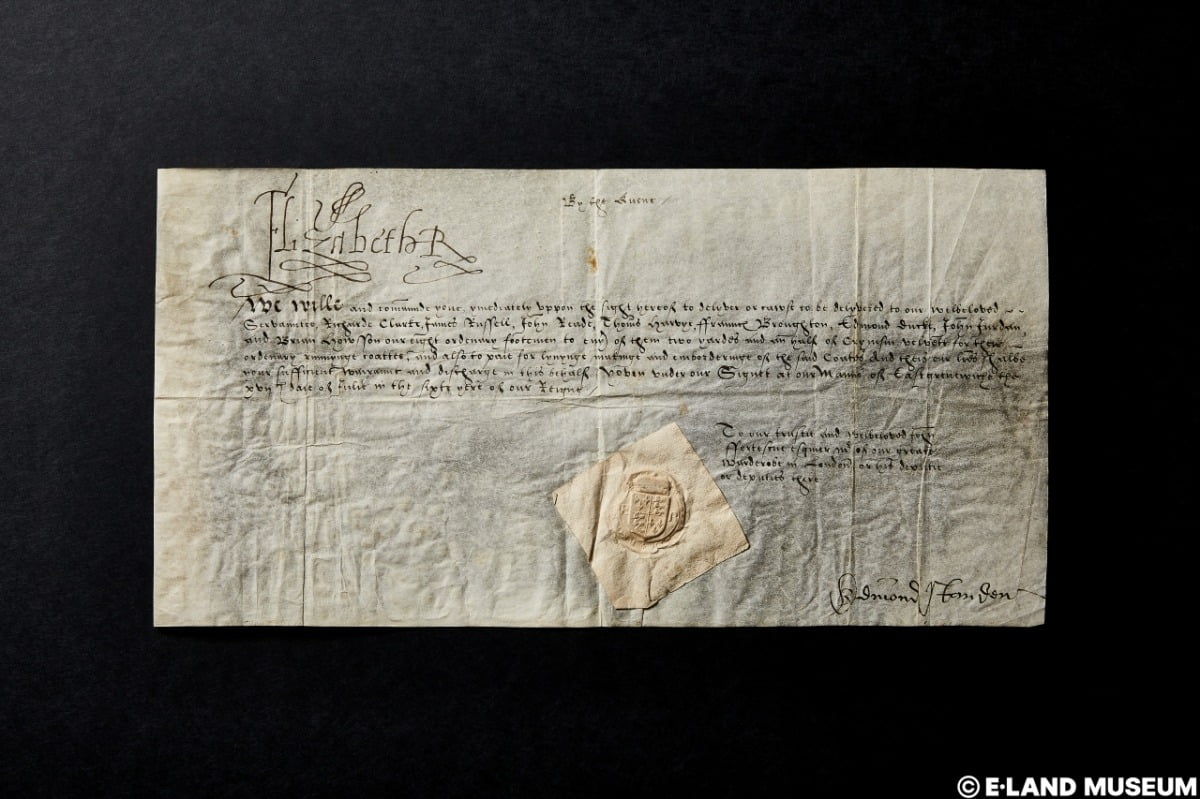 Elizabeth R
By the Quene
We wille and comaunde youe, ymediately uppon the sight hereof to deliver or cawse to be delyvered to our welbeloved
Servauntes, Richarde Clarke, James Russell, John Reade, Thomas Harvye, Ffrauncis Broughton, Edmond Duckt, John Jurdan,
and Brian Howsson our eight ordenary footemen to euy of them two yardes and an half of Crymsin velvett for their
ordenary runnynge coattes, and also to paie for lynynge makinge and imborderinge of the said Coates And theis our lres shalbe
your sufficient warraunt and discharge in this behalf Yoven under our Signet at our Manor of Eastgrenewiche the
xvijth daie of Julie in the sixte yere of our Reigne
To our trustie and welbeloved John
Ffortescue esquier mr of our greate
Warderobe in London, or his deputie
or deputies there
Edmond Standen
© E·LAND MUSEUM